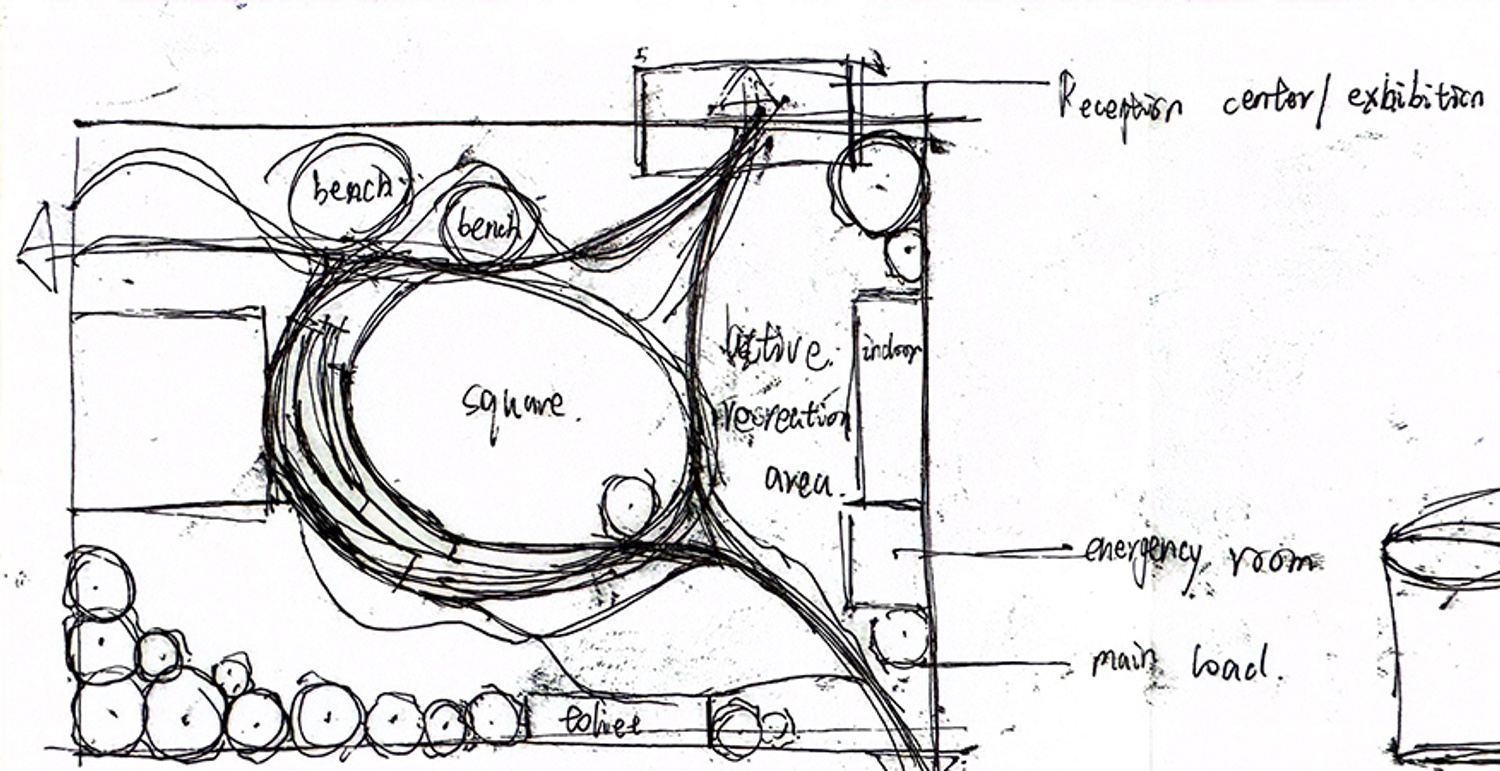 Reception center/ exbibition
bench
bench
Active
recreation
area.
indoor
square.
emergency room
main load.